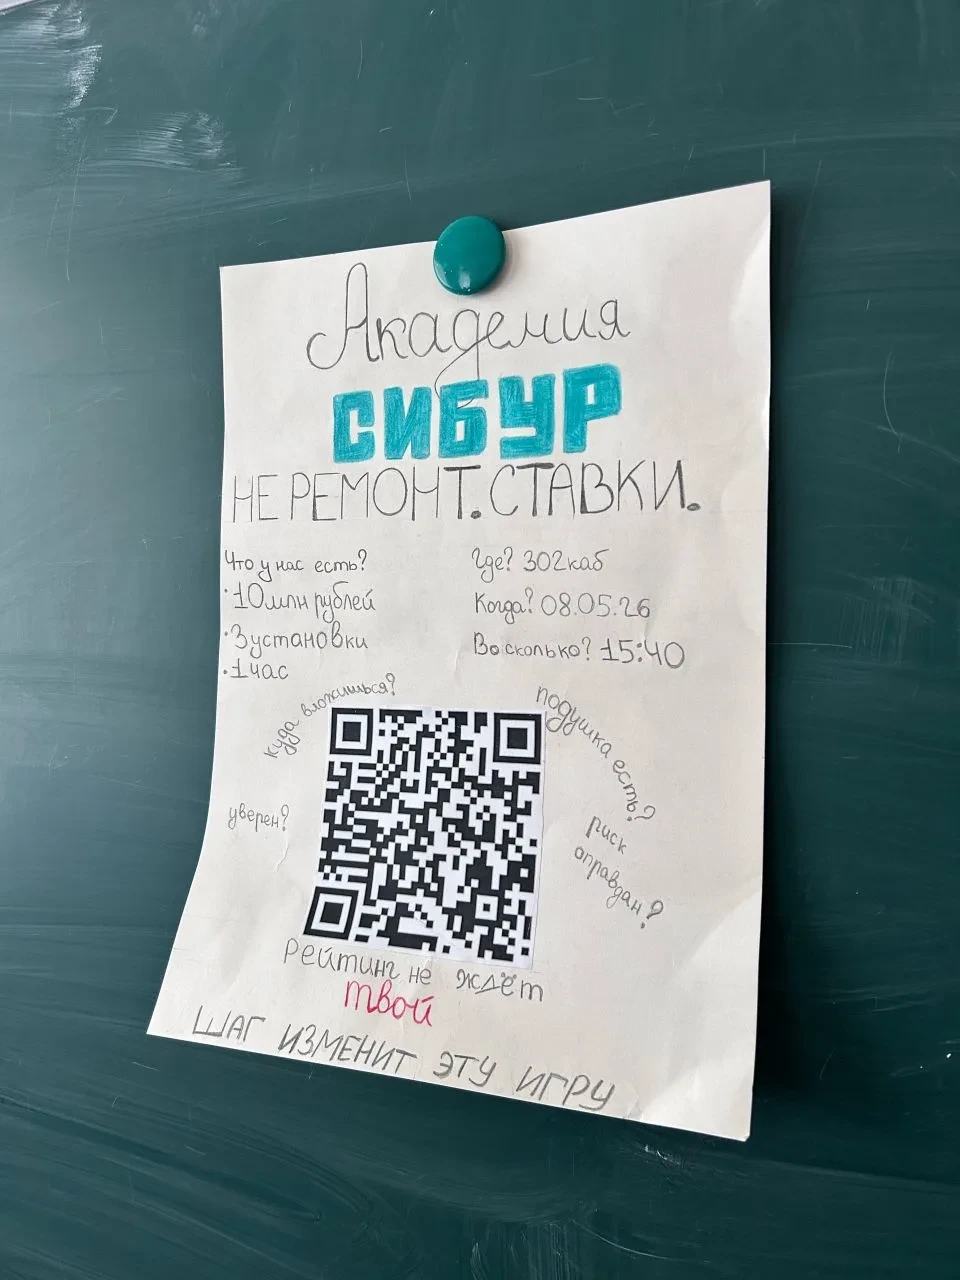 Академия
СИБУР
НЕ РЕМОНТ. СТАВКИ.
Что у нас есть?
· 10 млн рублей
· 3 установки
· 1 час
Где? 302 каб
Когда? 08.05.26
Во сколько? 15:40
куда вложишься?
подушка есть?
уверен?
риск
оправдан?
Рейтинг не ждёт
твой
ШАГ ИЗМЕНИТ ЭТУ ИГРУ